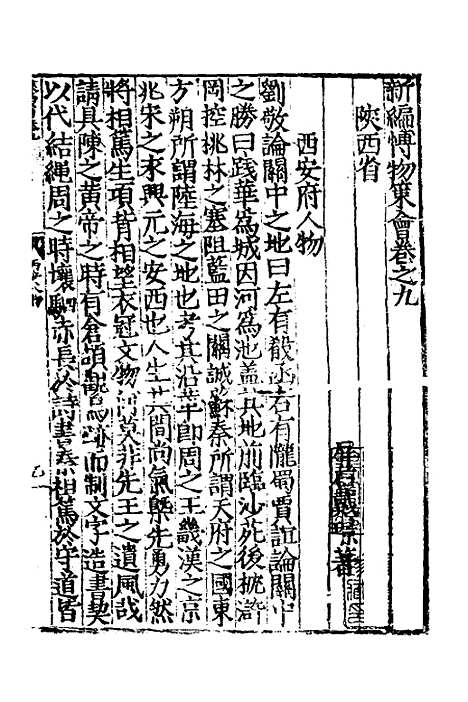 新編博物策會卷之九
陜西省
西安府人物
劉敬論關中之地曰左有殽函右有隴蜀賈誼論關中
之勝曰踐華爲城因河爲池蓋其地前臨沙苑後枕滸
岡控桃林之塞阻藍田之關誠蘇秦所謂天府之國東
方朔所謂陸海之地也考其沿革即周之王畿漢之京
兆宋之永興元之安西也人生其間尚氣槩先勇力然
將相篤生項背相望衣冠文物何莫非先王之遺風哉
請具陳之黃帝之時有倉頡觀鳥跡而制文字造書契
以代結繩周之時壤駟赤長於詩書秦相篤於守道居